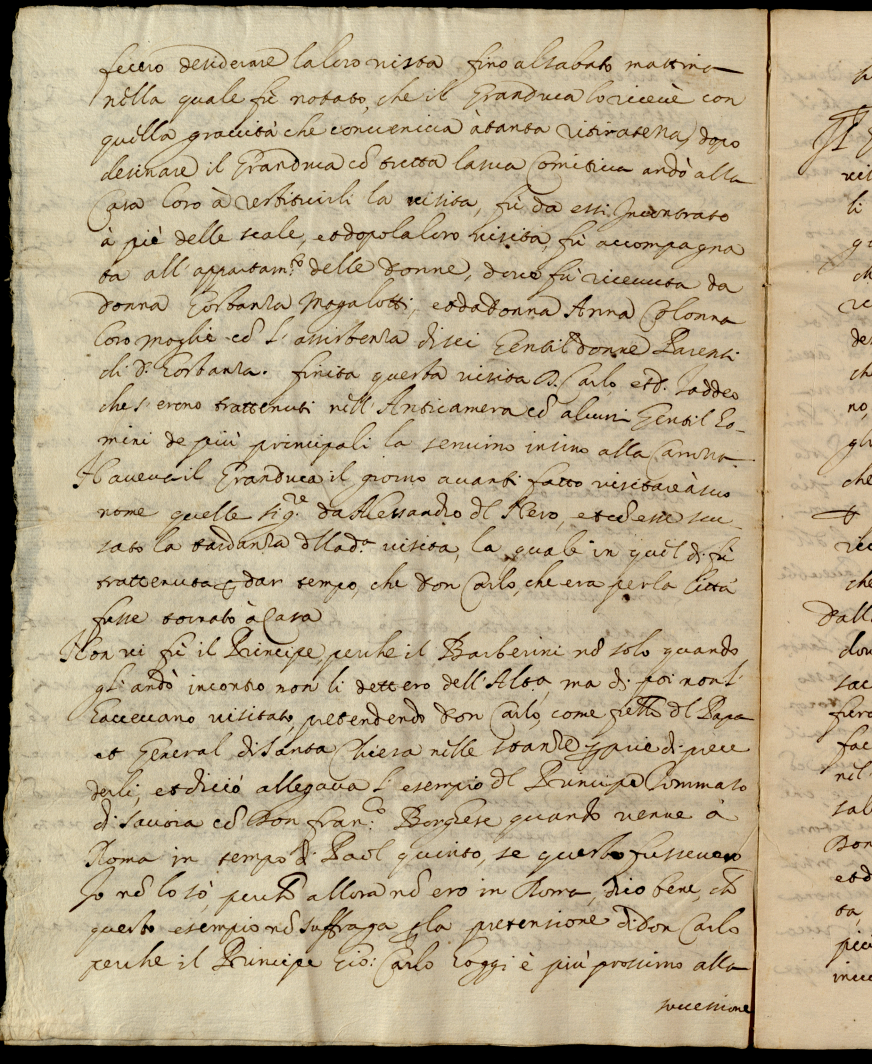 fecero desiderare la loro visita fino al sabato mattina
nella quale fù notato, che il Granduca lo ricevè con
quella gravità che conveniva à tanta ritiratezza, dopo
desinare il Granduca cō tutta la sua Comitiva andò alla
Casa loro à restituirli la visita, fù da essi Incontrato
à piè delle scale, et dopo la loro visita, fù accompagna
ta all' appartam.to delle donne, dove fù ricevuta da
donna Gostanza Magalotti, et da donna Anna Colonna
loro moglie cō l' assistenza di sei Gentildonne Parenti
di D. Gostanza. finita questa visita D. Carlo, et D. Taddeo
che s' erono trattenuti nell' Anticamera cō alcuni Gentil Ho-
mini de più principali la servirno insino alla Carrozza.
Haveva il Granduca il giorno avanti fatto visitare à suo
nome quelle Sig.re da Alessandro dl Nero, et cō esse scu-
sato la tardanza dlla d.a visita, la quale in quel dì fù
trattenuta dar tempo, che Don Carlo, che era per la Città
fusse tornato à Casa
Non vi fù il Principe, perche il Barberini nō solo quando
gl' andò incontro non li dettero dell' Alt.a, ma di poi non l'
haveveano visitato, pretendendo Don Carlo, come frēllo dl Papa
et General di Santa Chiesa nelle stanze di prece
derli, et di ciò allegava l' esempio dl Principe Tommaso
di Savoia cō Don Fran.co Borghese quando venne à
Roma in tempo di Paol quinto, se questo fusse vero
Io nō lo sò, perchē allora nō ero in Roma, dico bene, chē
questo esempio nō suffraga la pretensione di Don Carlo
perche il Principe Gio: Carlo hoggi è più prossimo alla
successione